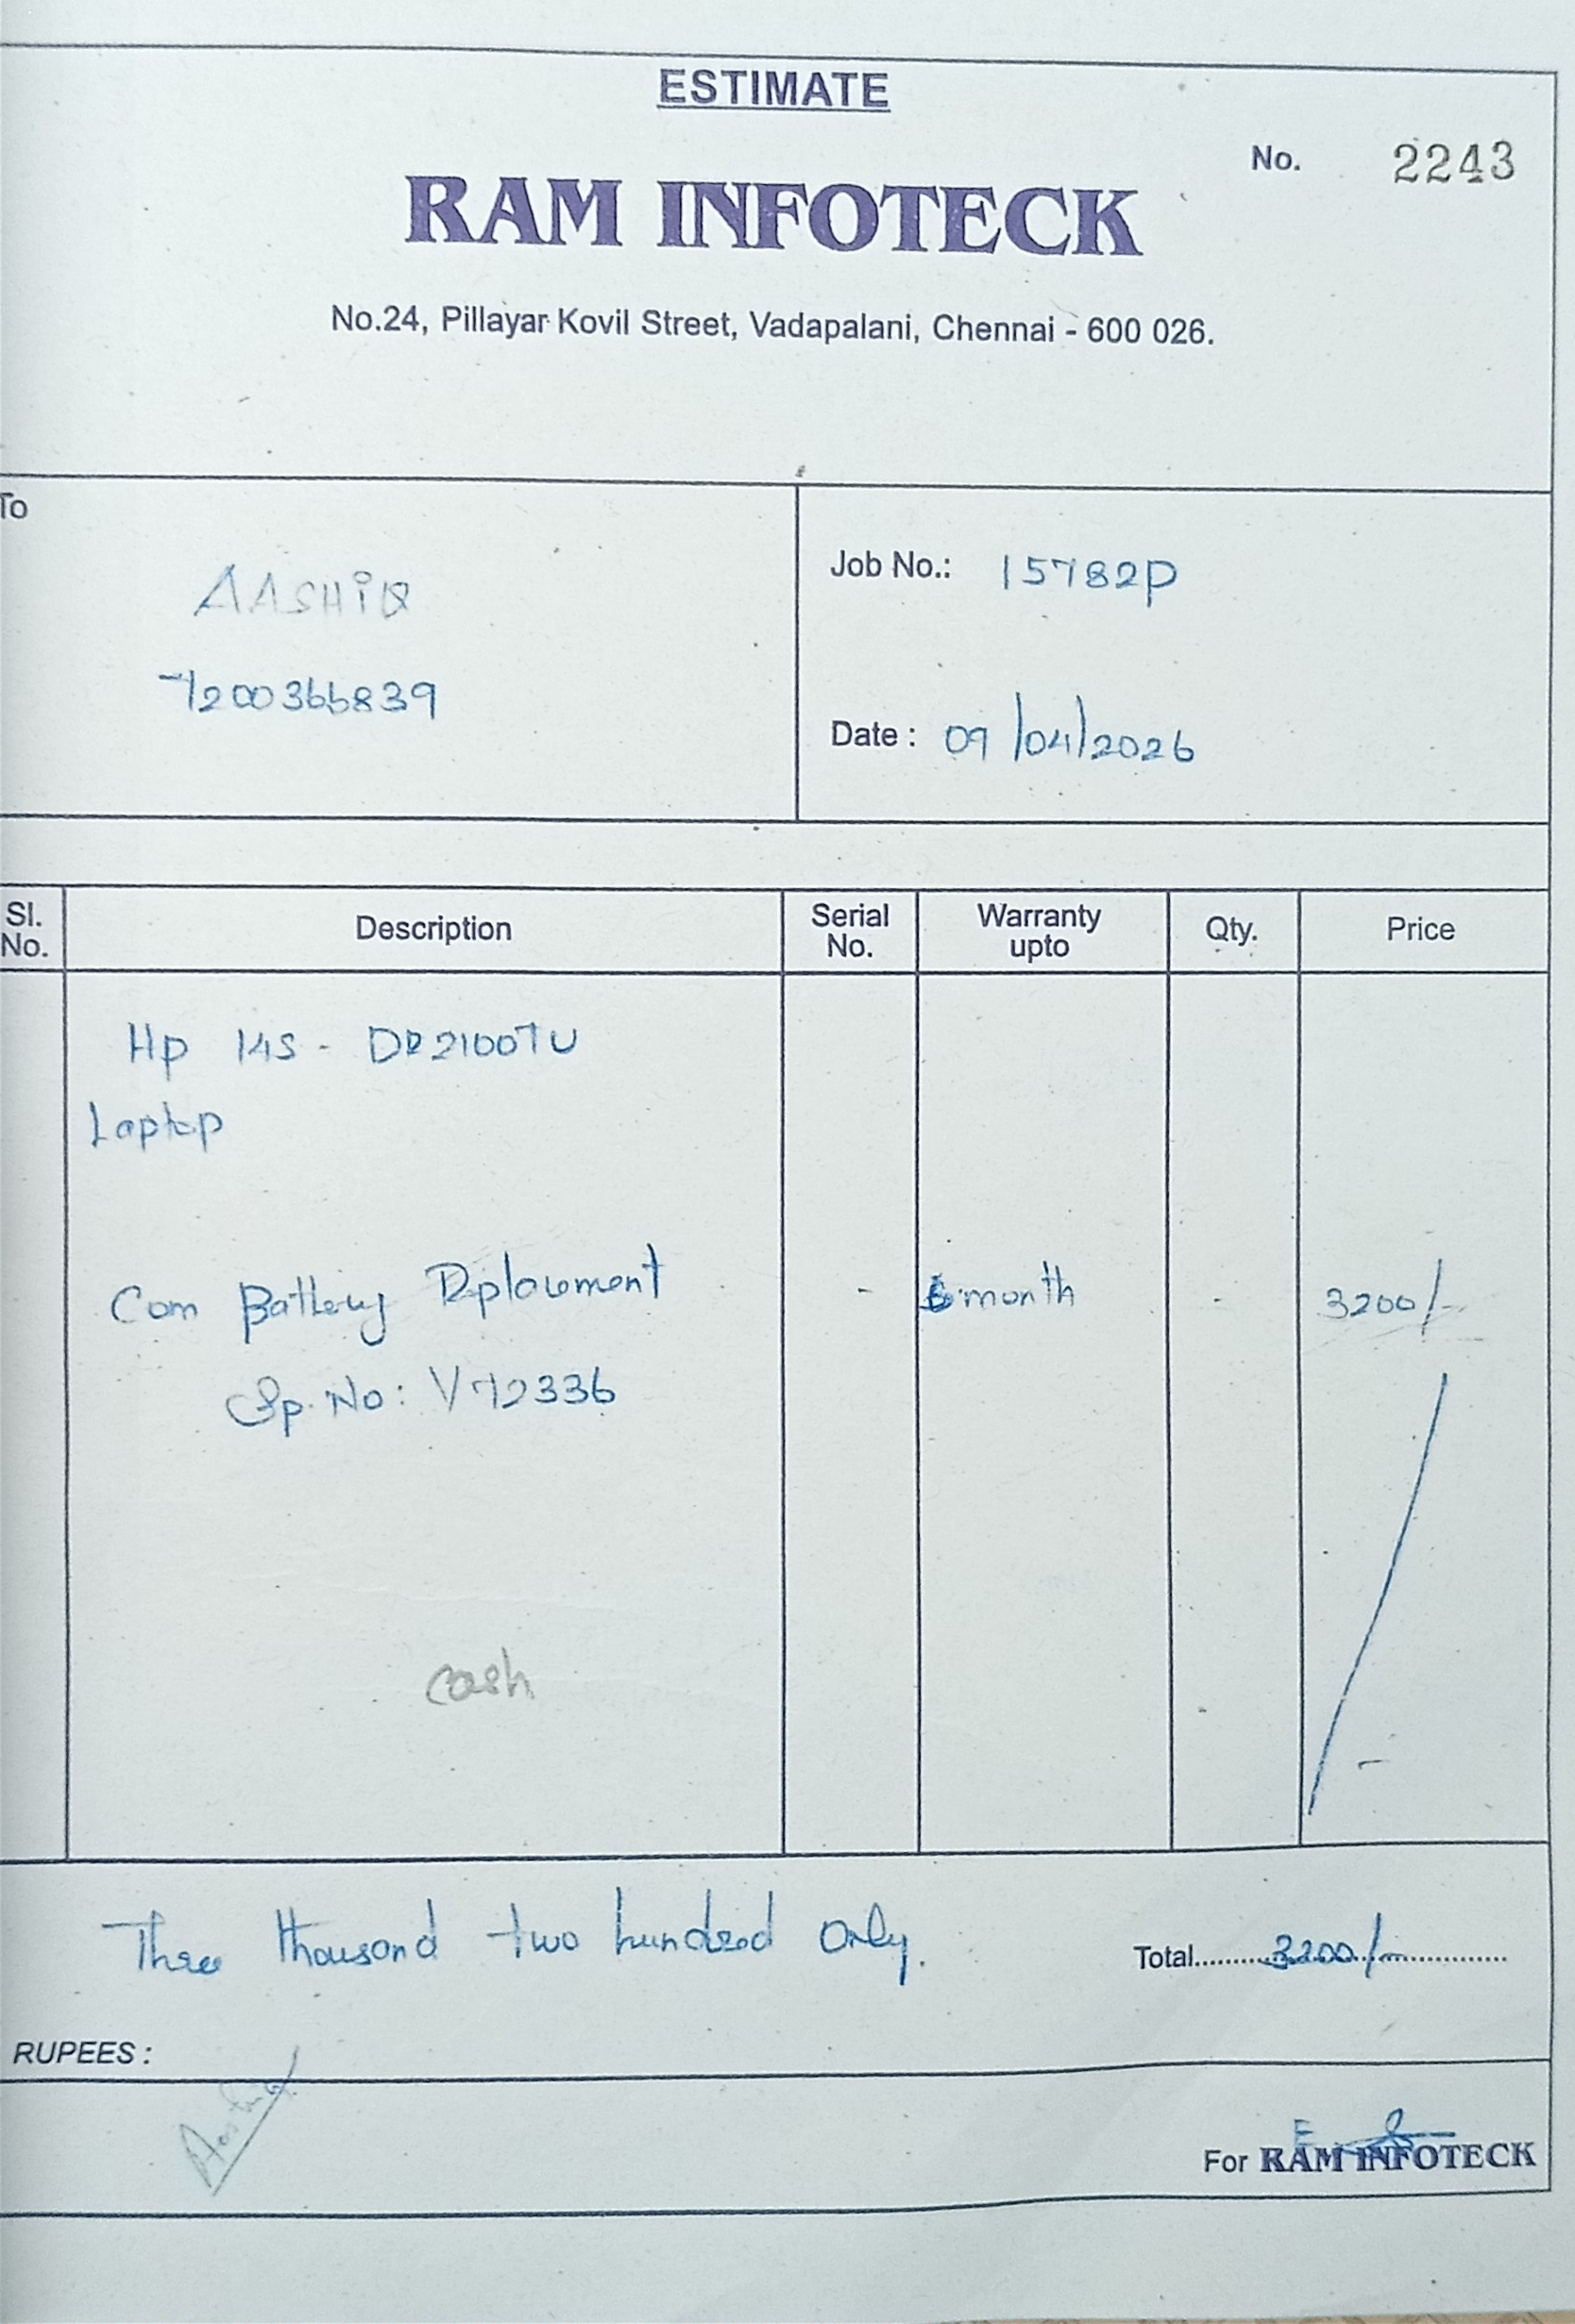 ESTIMATE
No. 2243
RAM INFOTECK
No.24, Pillayar Kovil Street, Vadapalani, Chennai - 600 026.
To
AASHIQ
7200366839
Job No.: 15782P
Date : 09/04/2026
Sl. No. Description Serial No. Warranty upto Qty. Price
Hp 14S - DR2100TU
Laptop
Com Battery Replacement - 6 month - 3200/-
Sp. No: V72336
cash
Three thousand two hundred only.
Total 3200/-
RUPEES :
Aashiq
For RAM INFOTECK